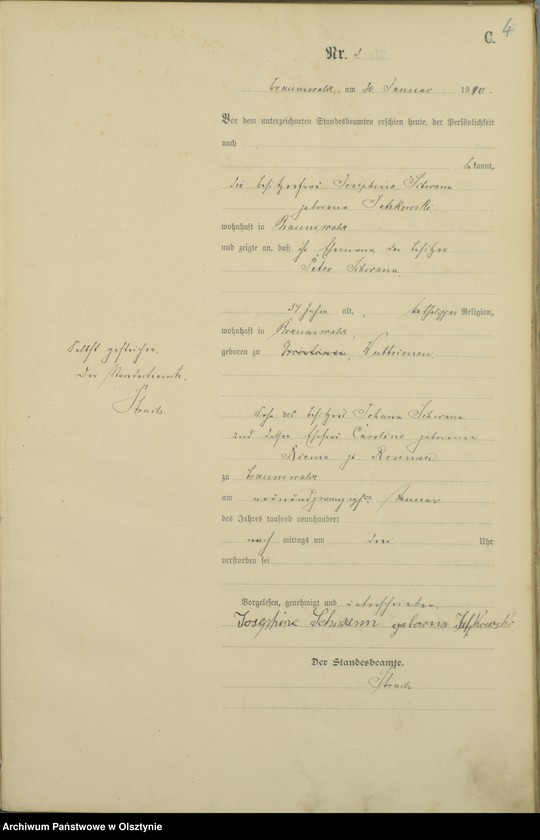 4
C.
Nr. 2
Braunswalde, am 30 Januar 1900.
Vor dem unterzeichneten Standesbeamten erschien heute, der Persönlichkeit
nach
bekannt,
die Besitzerfrau Josephine Schwann
geborene
wohnhaft in Braunswalde
und zeigte an, daß ihr Ehemann der Besitzer
Peter Schwann
Jahre alt, katholischer Religion,
wohnhaft in Braunswalde,
geboren zu Kuttrienen
Selbst gestrichen.
Der Standesbeamte.
Sohn des Besitzers Johann Schwann
und dessen Ehefrau Caroline geborenen
zu Rosenau
zu Braunswalde
am neunundzwanzigsten Januar
des Jahres tausend neunhundert
nach mittags um drei Uhr
verstorben sei
Vorgelesen, genehmigt und unterschrieben.
Josephine Schwann geborene
Der Standesbeamte.
Archiwum Państwowe w Olsztynie